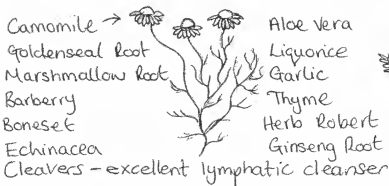 Camomile →
Goldenseal Root
Marshmallow Root
Barberry
Boneset
Echinacea
Aloe Vera
Liquorice
Garlic
Thyme
Herb Robert
Ginseng Root
Cleavers - excellent lymphatic cleanser